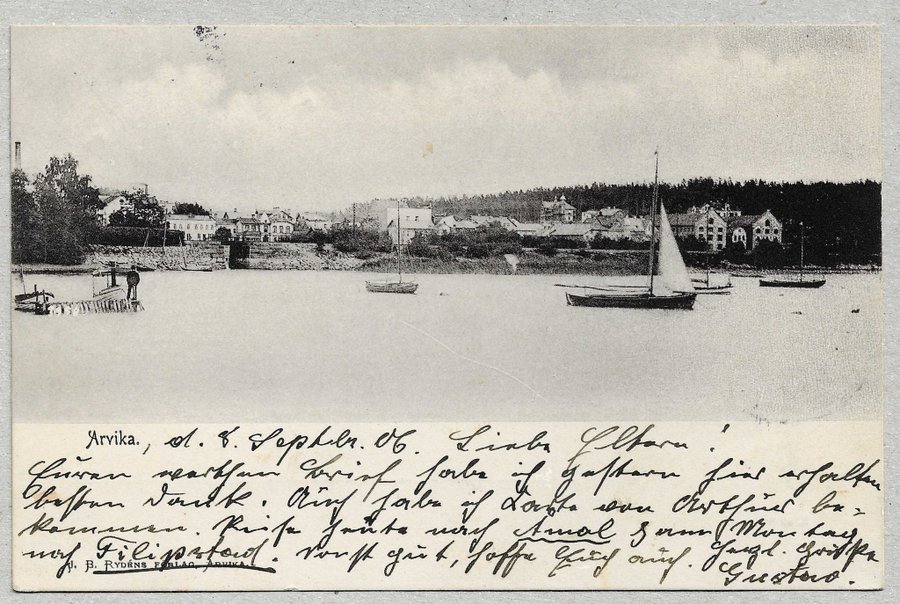 Arvika., d. 8. Septbr. 06. Liebe Eltern!
Euren werthen Brief habe ich gestern hier erhalten
besten Dank. Auch habe ich Karte von Arthur be=
kommen. Reise heute nach Amal & am Montag
nach Filipstad. Sonst gut, hoffe Euch auch. Herzl. Grüße
J. B. RYDÉNS FÖRLAG, ARVIKA.
Gustav.